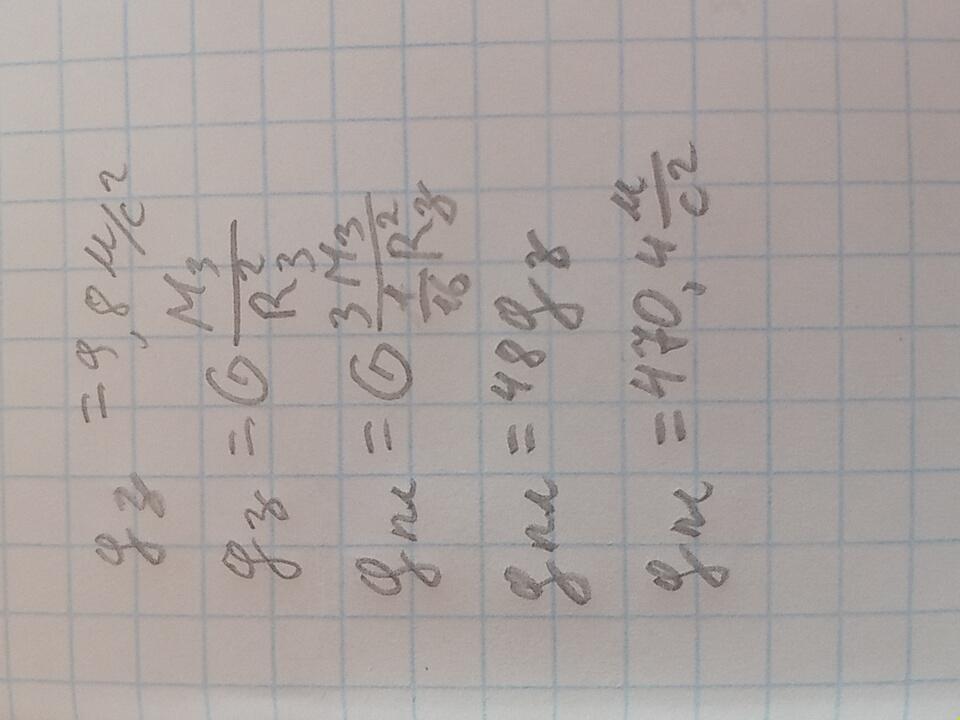 gз = 9,8 м/с²
gз = G Mз/Rз²
gпл = G 3Mз/(1/16 Rз²)
gпл = 48gз
gпл = 470,4 м/с²